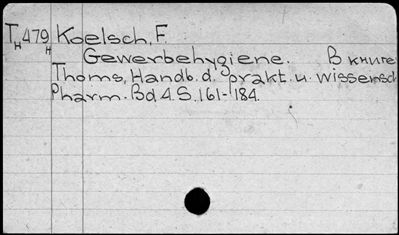 Tн479н Koelsch, F.
Gewerbehygiene. В книге
Thoms, Handb. d. prakt. u. wissensch
Pharm. Bd 4. S. 161-184.